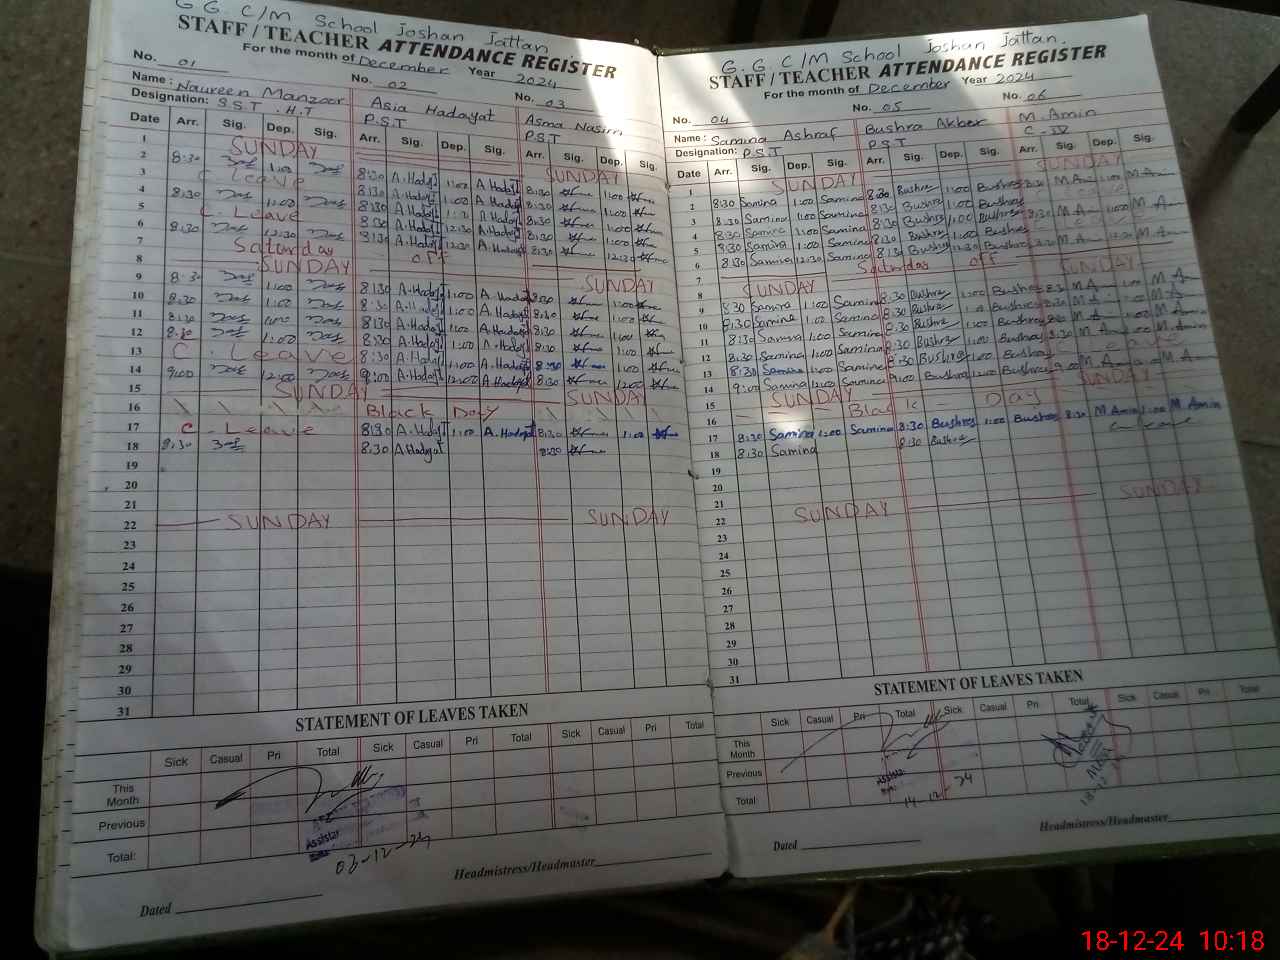 G.G. C/M School Joshan Jattan
STAFF/TEACHER ATTENDANCE REGISTER
For the month of December Year 2024
No. 01 No. 02 No. 03
Name: Naureen Manzoor Asia Hadayat Asma Nasim
Designation: S.S.T. H.T P.S.T P.S.T
Date Arr. Sig. Dep. Sig. Arr. Sig. Dep. Sig. Arr. Sig. Dep. Sig.
1 SUNDAY SUNDAY
2 8:30 1:00 8:30 A.Hadayat 1:00 A.Hadayat 8:30 1:00
3 C Leave 8:30 A.Hadayat 1:00 A.Hadayat 8:30 1:00
4 8:30 1:00 8:30 A.Hadayat A.Hadayat 8:30 1:00
5 C. Leave 8:30 A.Hadayat A.Hadayat 8:30 1:00
6 8:30 12:30 8:30 A.Hadayat 12:30 A.Hadayat 8:30 12:30
7 Saturday off
8 SUNDAY SUNDAY
9 8:30 1:00 8:30 A.Hadayat 1:00 A.Hadayat 8:30 1:00
10 8:30 1:00 8:30 A.Hadayat 1:00 A.Hadayat 8:30 1:00
11 8:30 1:00 8:30 A.Hadayat 1:00 A.Hadayat 8:30 1:00
12 8:30 1:00 8:30 A.Hadayat 1:00 A.Hadayat 8:30 1:00
13 C. Leave 8:30 A.Hadayat 1:00 A.Hadayat 8:30 1:00
14 9:00 12:00 9:00 A.Hadayat 12:00 A.Hadayat 8:30 12:00
15 SUNDAY SUNDAY
16 Black Day
17 C. Leave 8:30 A.Hadayat 1:00 A.Hadayat 8:30 1:00
18 8:30 8:30 A.Hadayat 8:30
19
20
21
22 SUNDAY SUNDAY
23
24
25
26
27
28
29
30
31
STATEMENT OF LEAVES TAKEN
Sick Casual Pri Total Sick Casual Pri Total Sick Casual Pri Total
This Month
Previous
Total:
03-12-24
Dated Headmistress/Headmaster
G.G. C/M School Joshan Jattan.
STAFF/TEACHER ATTENDANCE REGISTER
For the month of December Year 2024
No. 04 No. 05 No. 06
Name: Samina Ashraf Bushra Akber M.Amin
Designation: P.S.T P.S.T C-IV
Date Arr. Sig. Dep. Sig. Arr. Sig. Dep. Sig. Arr. Sig. Dep. Sig.
1 SUNDAY SUNDAY
2 8:30 Samina 1:00 Samina 8:30 Bushra 1:00 Bushra 8:30 M.Am 1:00 M.Am
3 8:30 Samina 1:00 Samina 8:30 Bushra 1:00 Bushra
4 8:30 Samina 1:00 Samina 8:30 Bushra 1:00 Bushra 8:30 M.Am 1:00 M.Am
5 8:30 Samina 1:00 Samina 8:30 Bushra 1:00 Bushra
6 8:30 Samina 12:30 Samina 8:30 Bushra 12:30 Bushra M.Am M.Am
7 Saturday off
8 SUNDAY SUNDAY
9 8:30 Samina 1:00 Samina 8:30 Bushra 1:00 Bushra 8:30 M.Am 1:00 M.Am
10 8:30 Samina 1:00 Samina 8:30 Bushra 1:00 Bushra 8:30 M.A 1:00 M.Am
11 8:30 Samina 1:00 Samina 8:30 Bushra 1:00 Bushra 8:30 M.A 1:00 M.Amin
12 8:30 Samina 1:00 Samina 8:30 Bushra 1:00 Bushra
13 8:30 Samina 1:00 Samina 8:30 Bushra 1:00 Bushra Leave
14 9:00 Samina 12:00 Samina 9:00 Bushra 12:00 Bushra 9:00 M.Am M.Am
15 SUNDAY SUNDAY
16 Black Day
17 8:30 Samina 1:00 Samina 8:30 Bushra 1:00 Bushra 8:30 M.Amin 1:00 M.Amin
18 8:30 Samina 8:30 Bushra C Leave
19
20
21
22 SUNDAY SUNDAY
23
24
25
26
27
28
29
30
31
STATEMENT OF LEAVES TAKEN
Sick Casual Pri Total Sick Casual Pri Total Sick Casual Pri Total
This Month
Previous
Total
14-12-24
Dated Headmistress/Headmaster
18-12-24 10:18